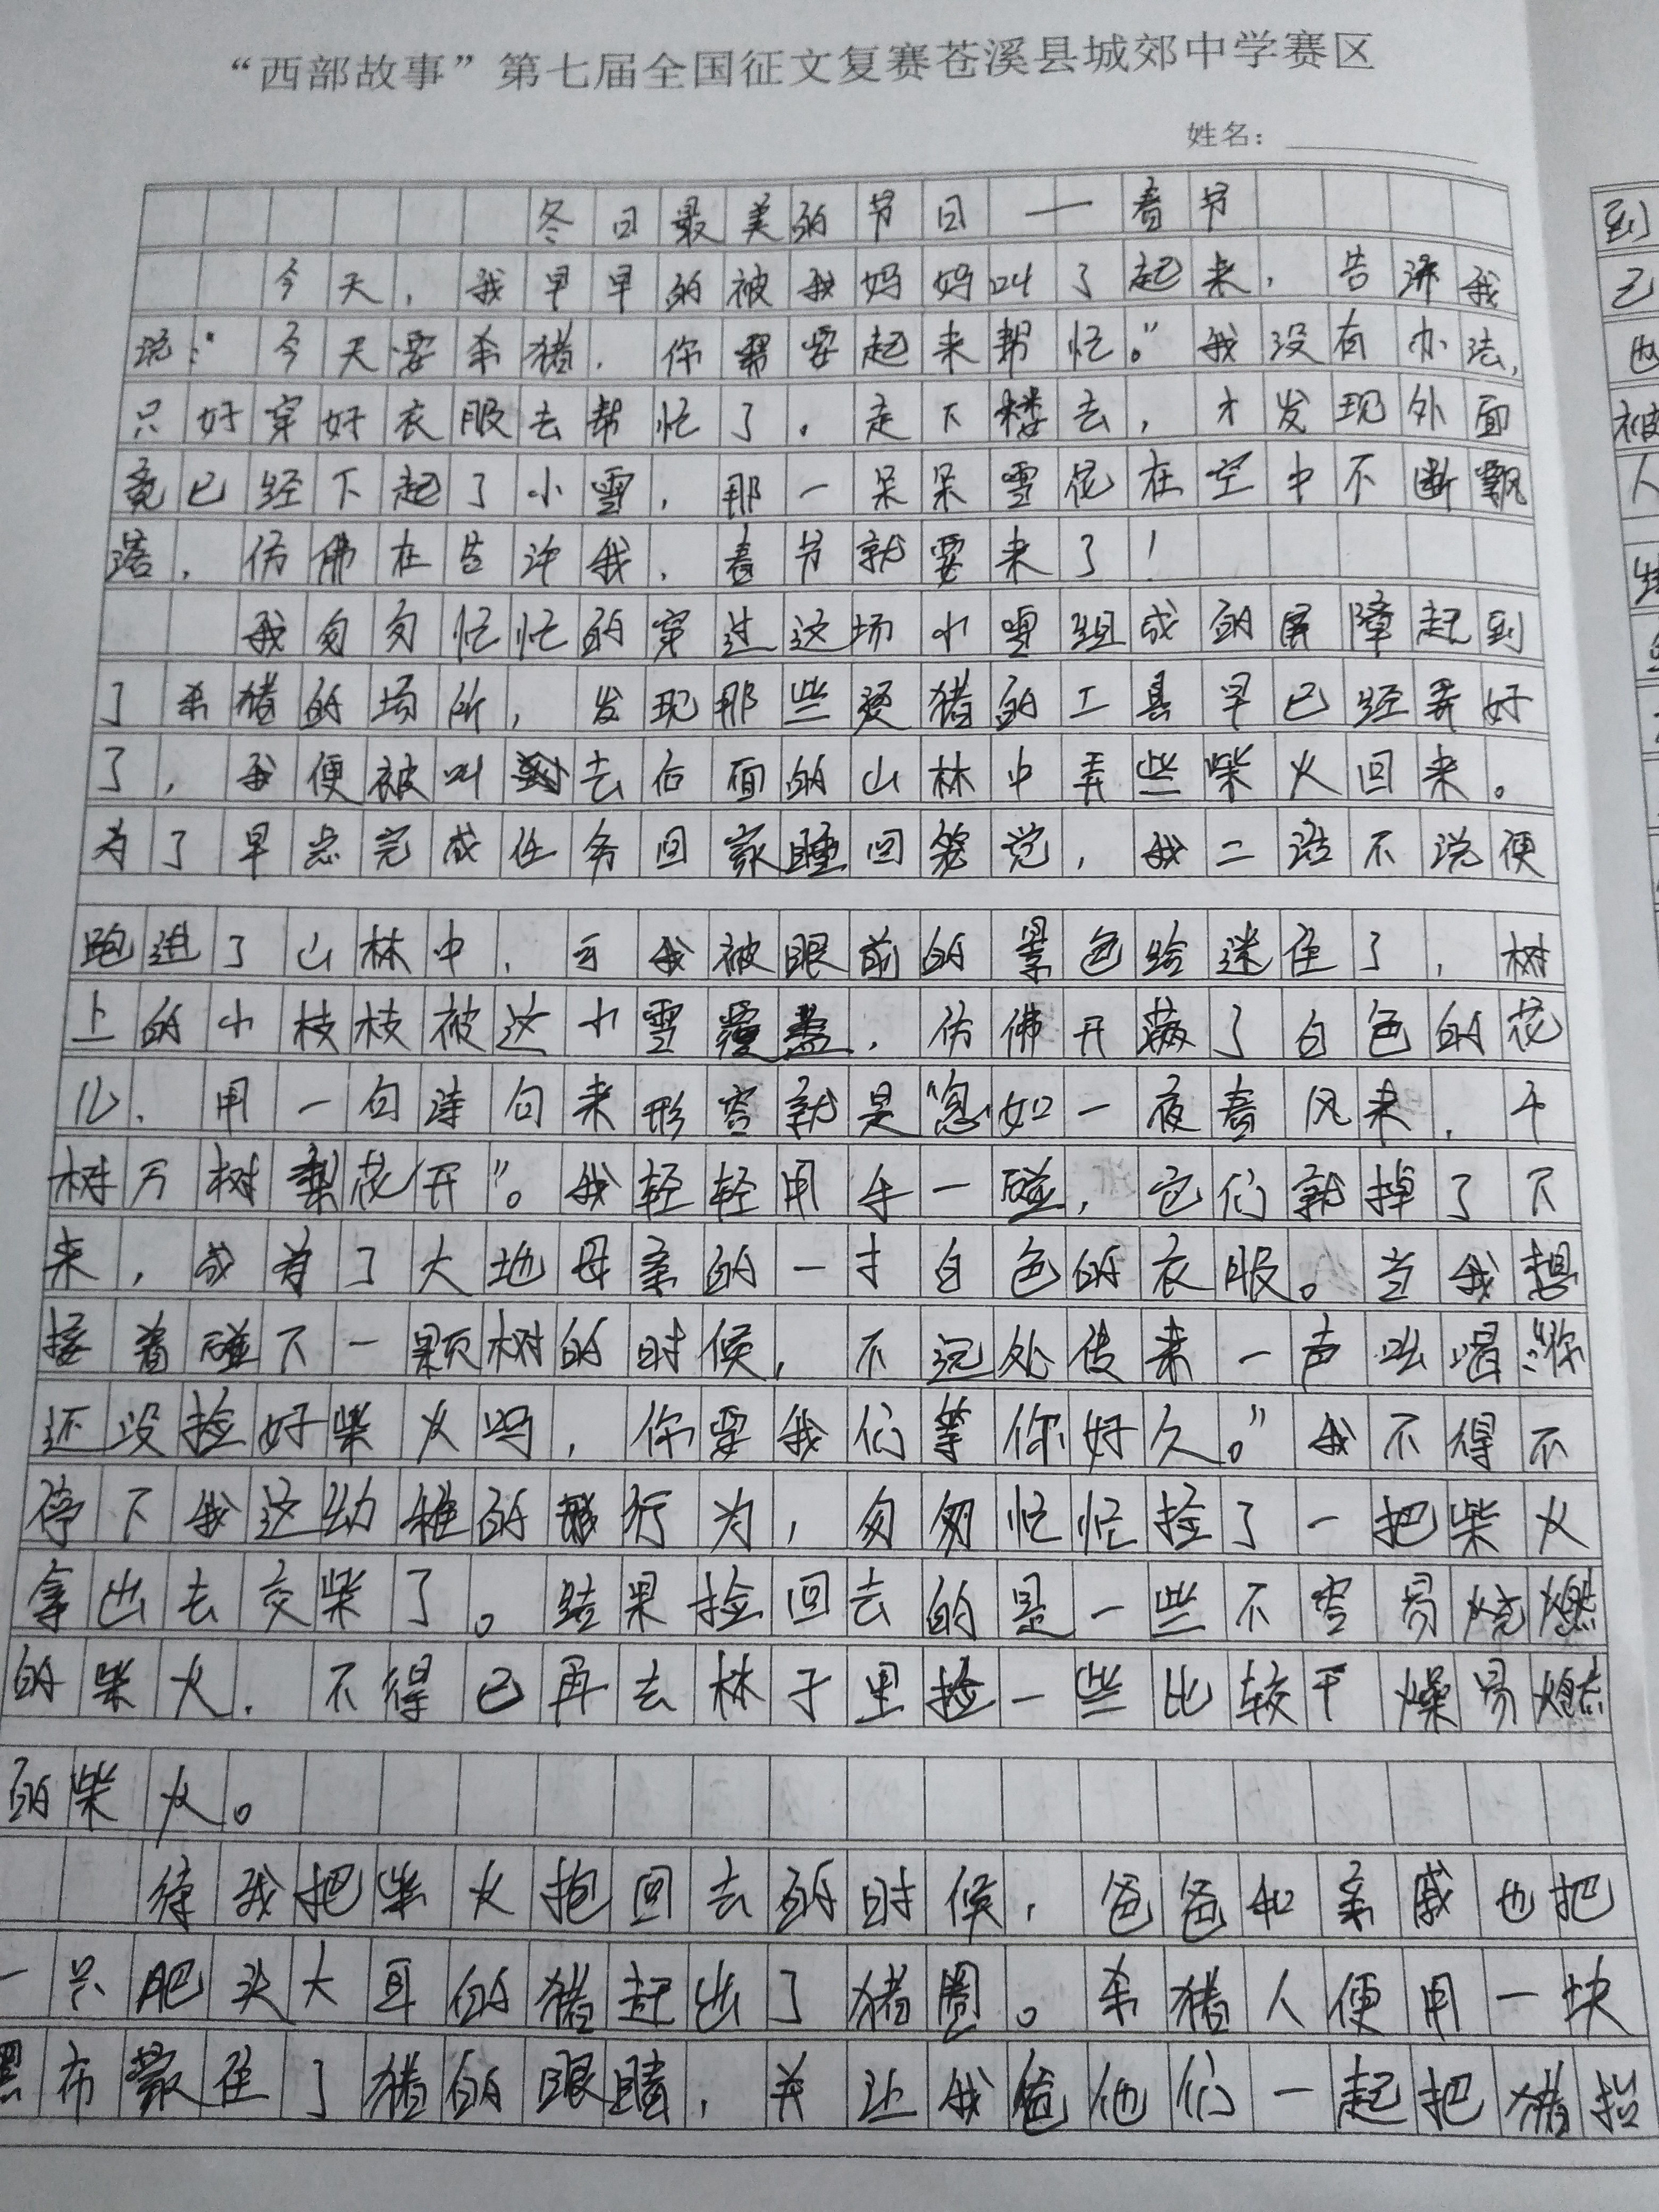 “西部故事”第七届全国征文复赛苍溪县城郊中学赛区
姓名：
冬日最美的节日——春节
今天，我早早的被我妈妈叫了起来，告诉我
说：“今天要杀猪，你需要起来帮忙。”我没有办法，
只好穿好衣服去帮忙了。走下楼去，才发现外面
竟已经下起了小雪，那一朵朵雪花在空中不断飘
落，仿佛在告诉我，春节就要来了！
我匆匆忙忙的穿过这场小雪组成的屏障赶到
了杀猪的场所，发现那些烫猪的工具早已经弄好
了，我便被叫去后面的山林中弄些柴火回来。
为了早点完成任务回家睡回笼觉，我二话不说便
跑进了山林中，可我被眼前的景色给迷住了，树
上的小枝枝被这小雪覆盖，仿佛开满了白色的花
儿，用一句诗句来形容就是“忽如一夜春风来，千
树万树梨花开”。我轻轻用手一碰，它们就掉了下
来，成为了大地母亲的一才白色的衣服。当我想
接着碰下一颗树的时候，不远处传来一声吆喝：“你
还没捡好柴火吗，你要我们等你好久。”我不得不
停下我这幼稚的行为，匆匆忙忙捡了一把柴火
拿出去交柴了。结果捡回去的是一些不容易烧燃
的柴火，不得已再去林子里捡一些比较干燥易燃
的柴火。
待我把柴火抱回去的时候，爸爸和亲戚也把
一只肥头大耳的猪赶出了猪圈。杀猪人便用一块
黑布蒙住了猪的眼睛，并让我爸他们一起把猪抬
到
己
被
人